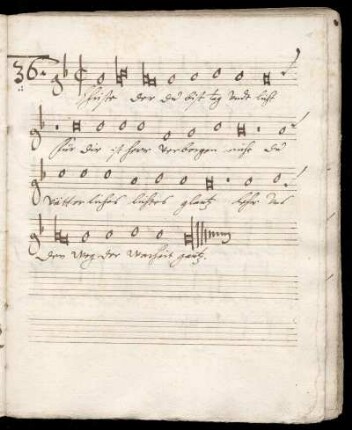 36.
Christe der du bist tag undt licht
für dir ist herr verborgen nicht du
vätterliches lichtes glantz lehr uns
den weg der warheit gantz.